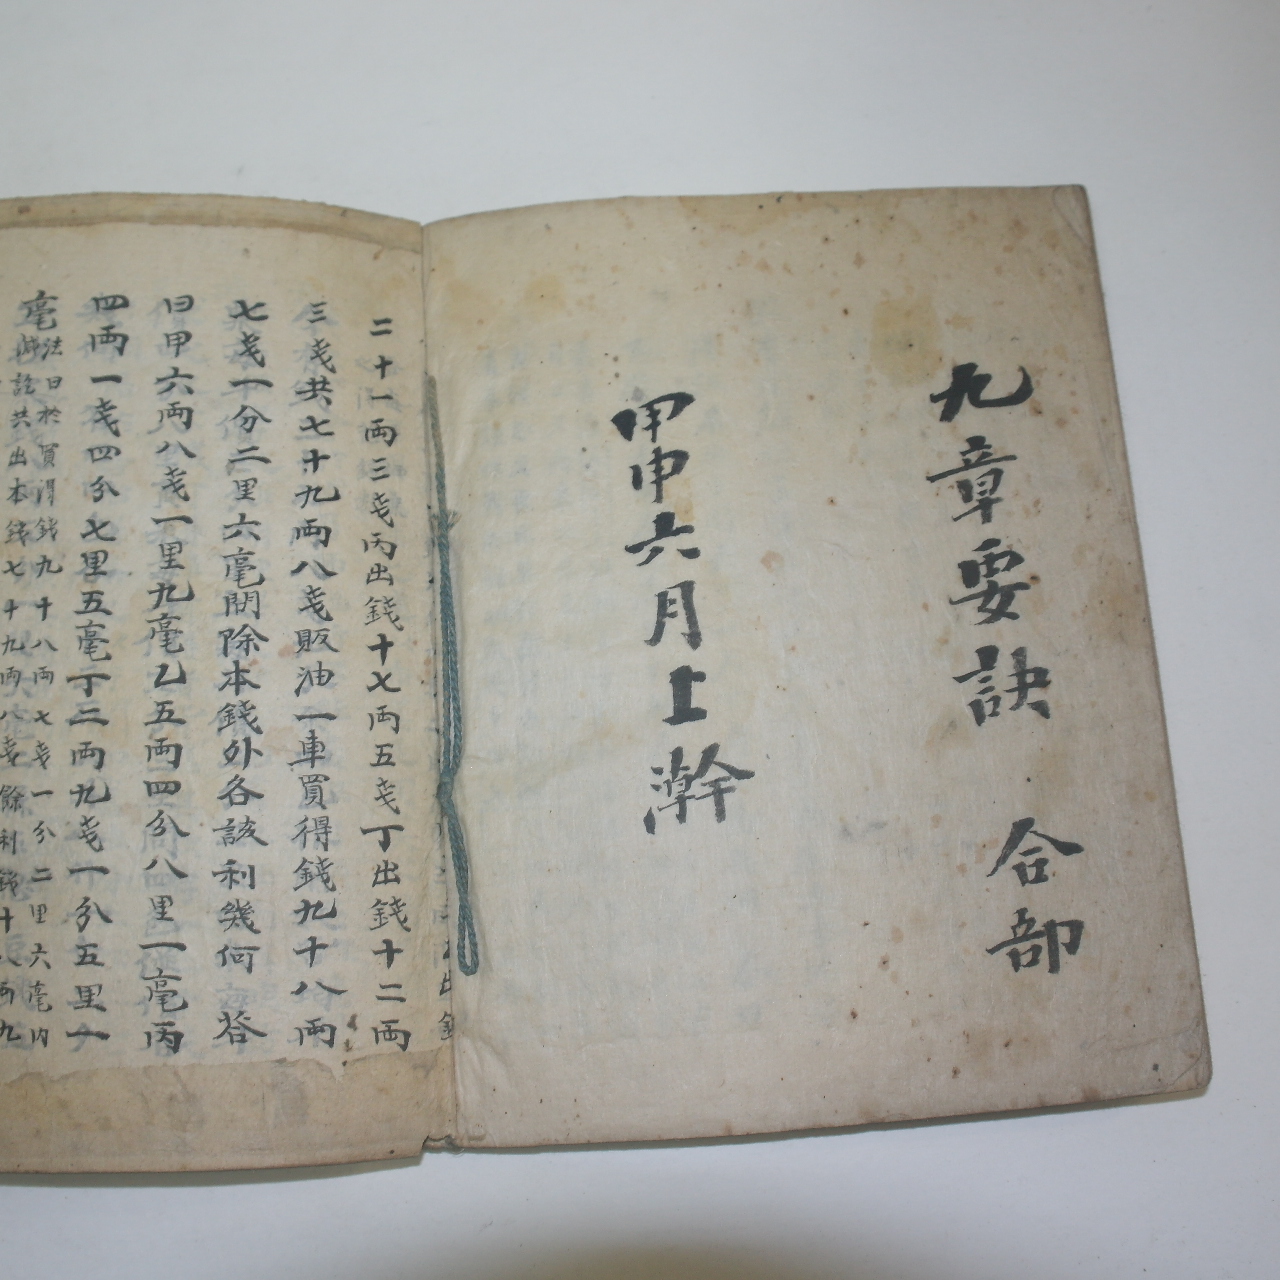 九章要訣 合部
甲申六月上澣
二十一両三戔丙出錢十七両五戔丁出錢十二両
三戔共七十九両八戔販油一車買得錢九十八両
七戔一分二里六毫問除本錢外各該利幾何 答
曰甲六両八戔一里九毫乙五両四分八里一毫丙
四両一戔四分七里五毫丁二両九戔一分五里一
毫
法曰於買得錢九十八両七戔一分二里六毫内
訖共出本錢七十九両八戔餘利錢十八両九